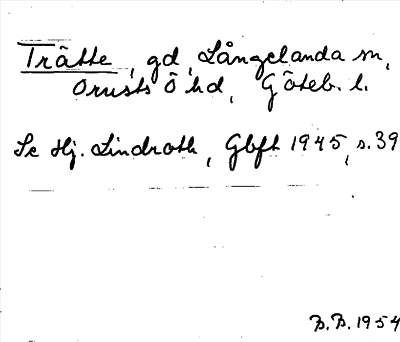 Trätte, gd, Långelanda sn,
Orusts Ö hd, Göteb. l.
Se Hj. Lindroth, Gbft 1945, s. 39
B.B. 1954